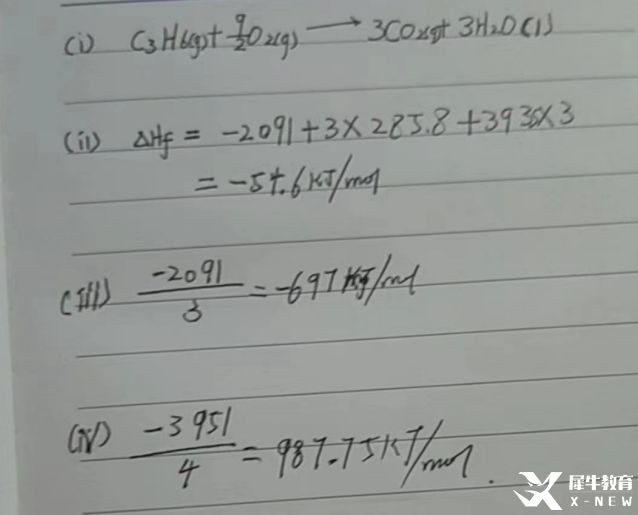 (i) C3H6(g)+9/2O2(g) ⟶ 3CO2(g)+3H2O(l)
(ii) ΔHf = -2091+3×285.8+393.5×3
= -54.6KJ/mol
(iii) -2091/3 = -697 KJ/mol
(iv) -3951/4 = 987.75KJ/mol.
犀牛教育
X-NEW